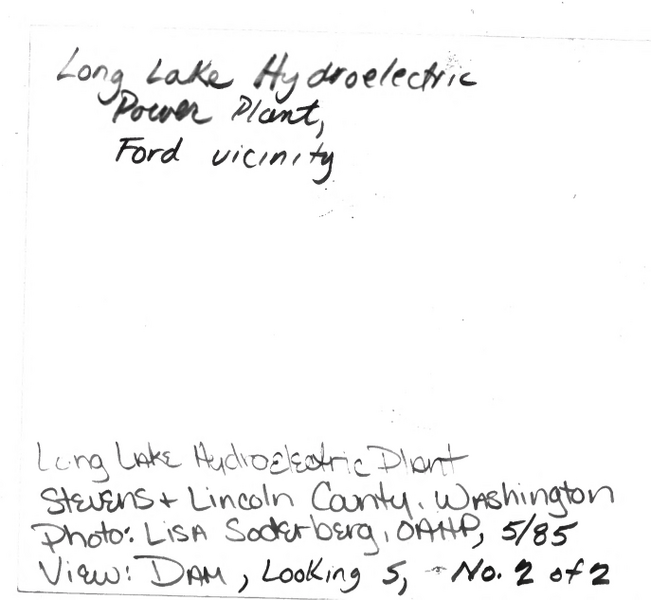 Long Lake Hydroelectric
Power Plant,
Ford vicinity
Long Lake Hydroelectric Plant
Stevens + Lincoln County, Washington
Photo: Lisa Soderberg, OAHP, 5/85
View: Dam, Looking S, No. 2 of 2